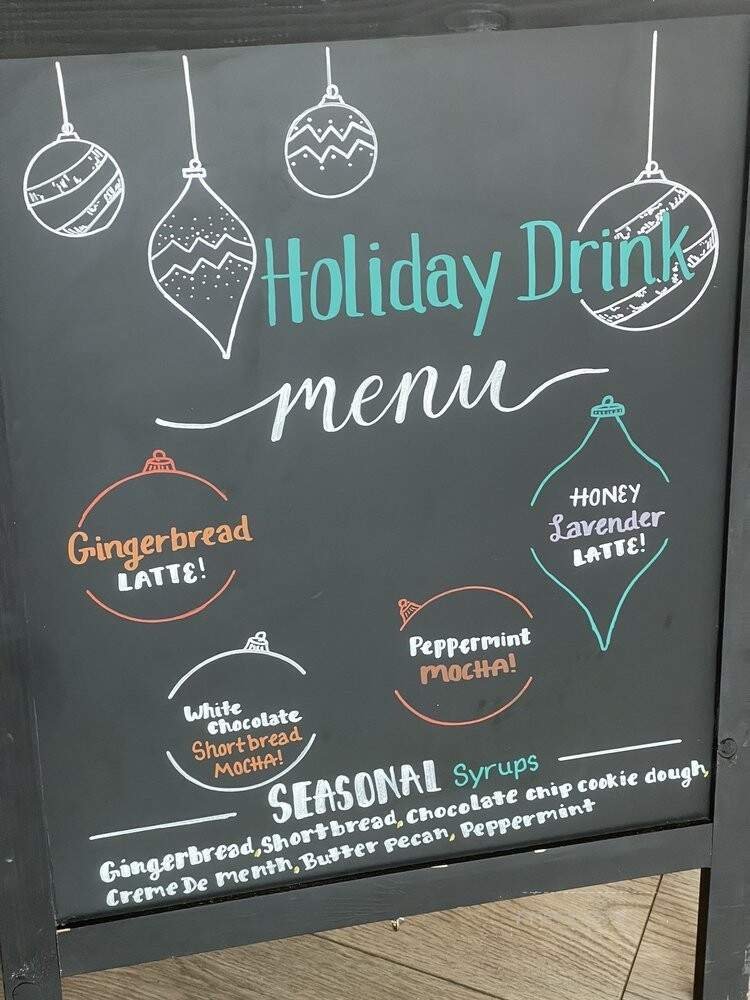 Holiday Drink
menu
Gingerbread
LATTE!
HONEY
Lavender
LATTE!
Peppermint
MOCHA!
White
Chocolate
Shortbread
MOCHA!
SEASONAL Syrups
Gingerbread, Shortbread, Chocolate chip cookie dough,
Creme De menth, Butter pecan, Peppermint